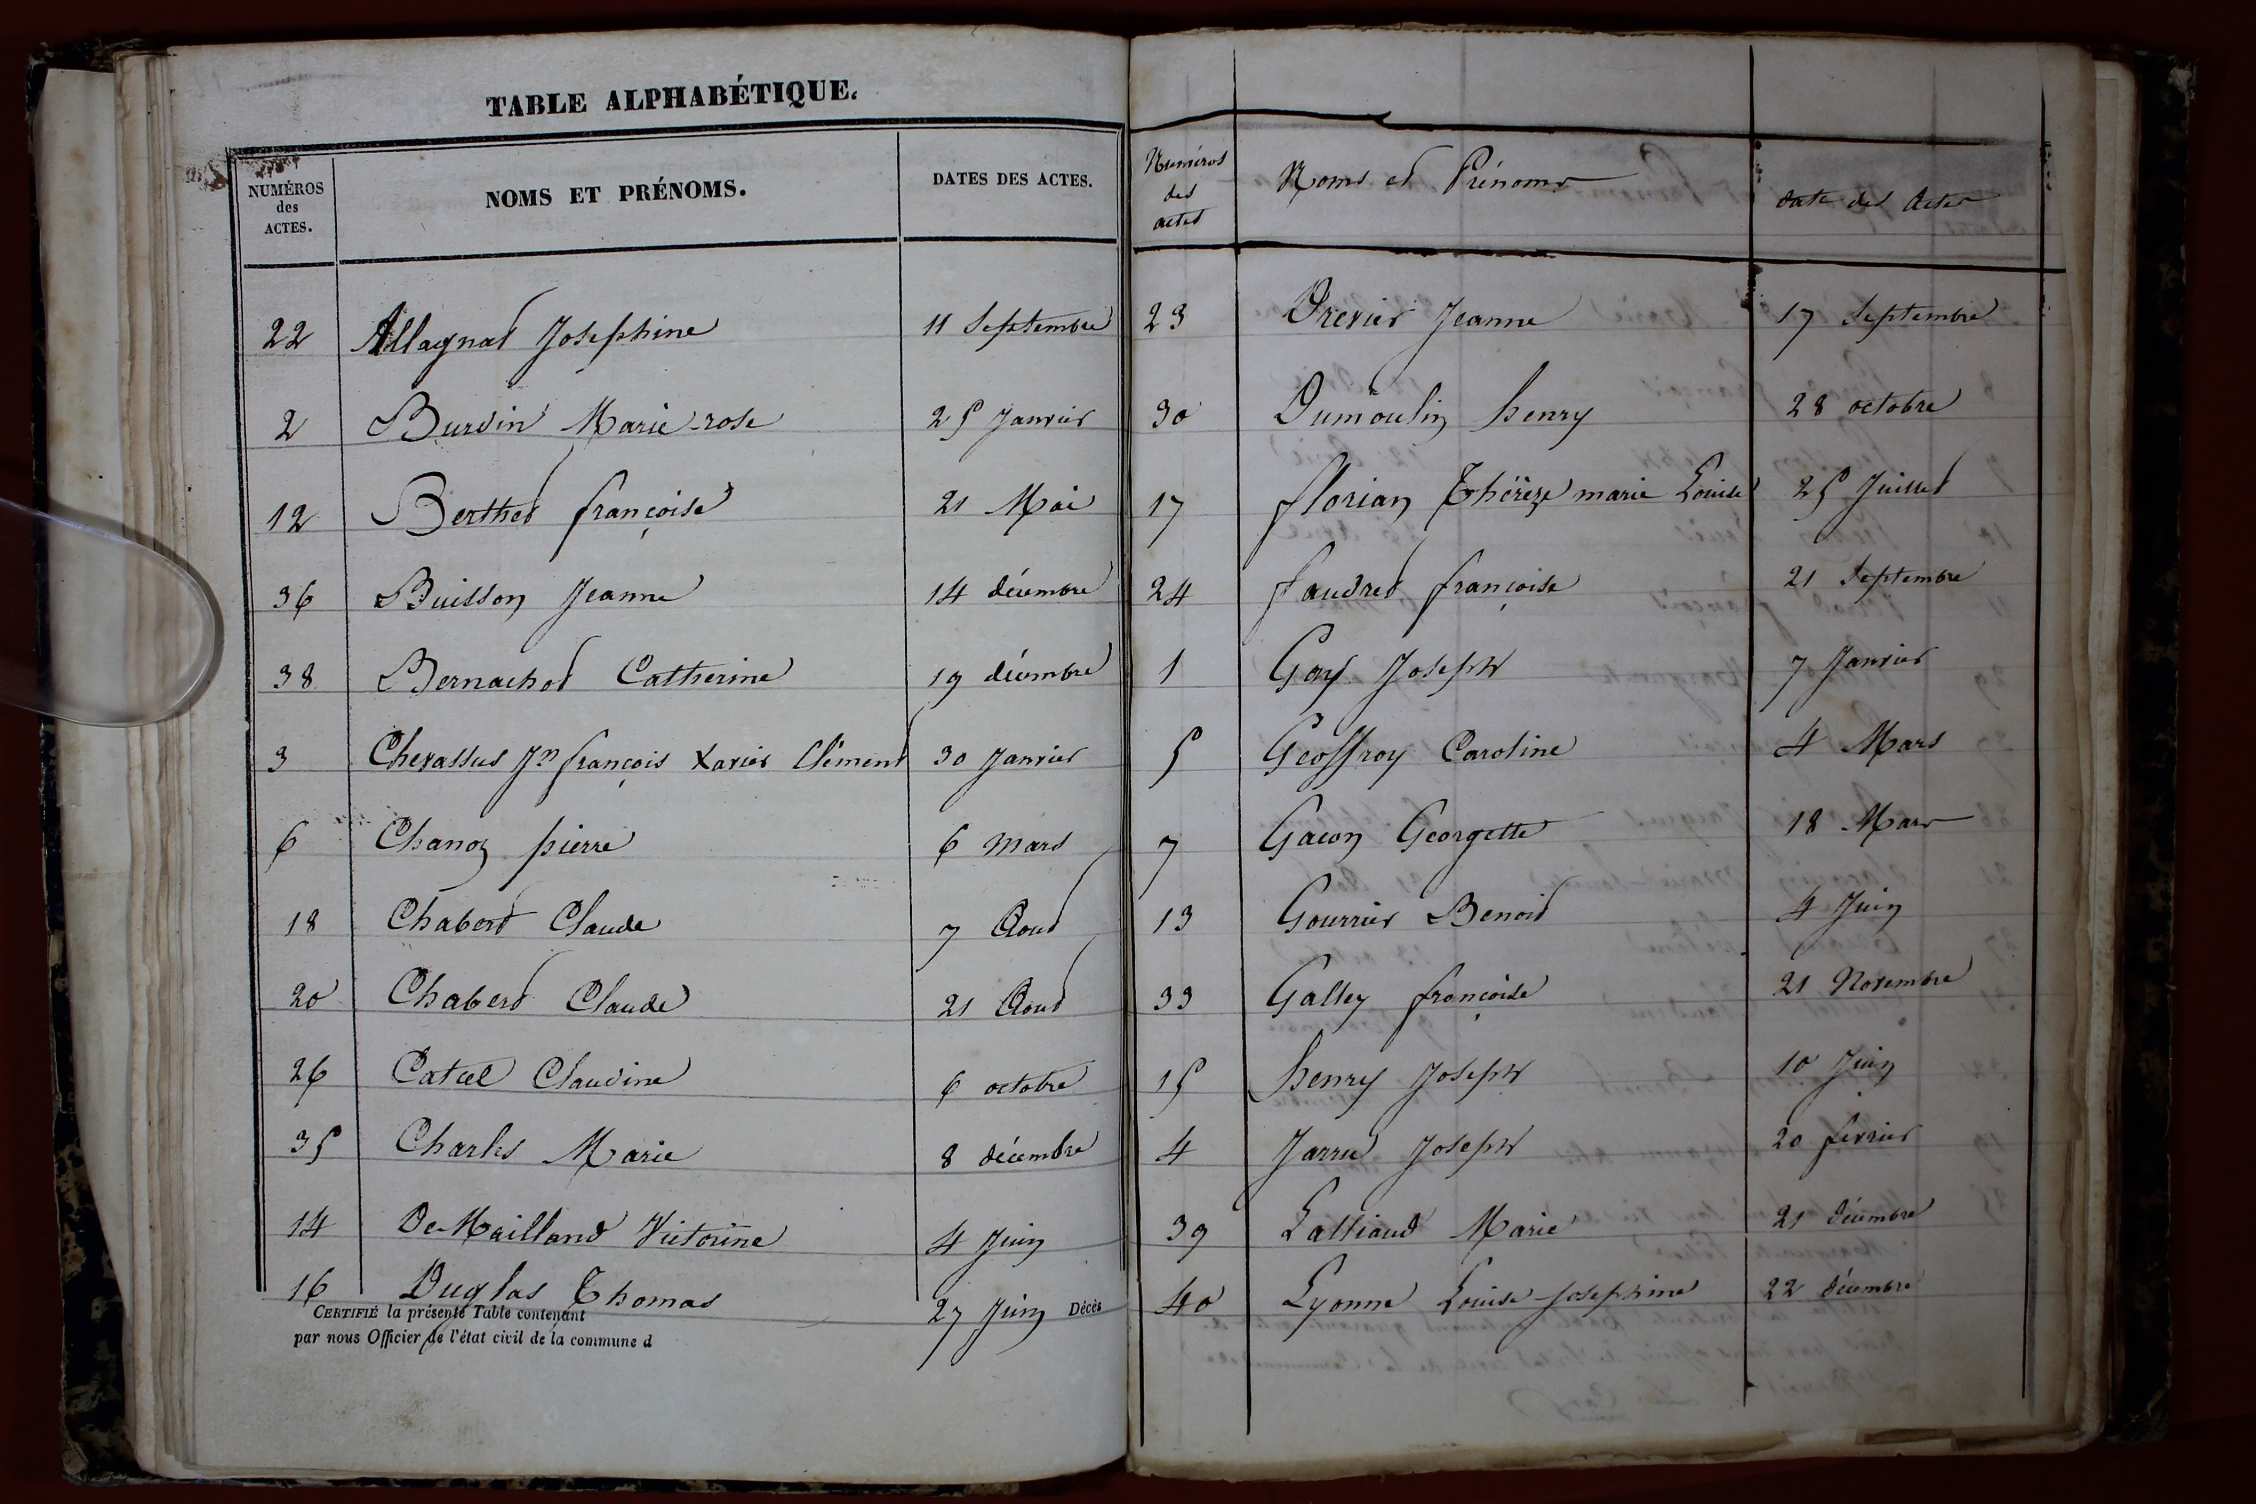 TABLE ALPHABÉTIQUE.
NUMÉROS des ACTES. NOMS ET PRÉNOMS. DATES DES ACTES.
22 Allagnat Josephine 11 Septembre
2 Burdin Marie-rose 25 Janvier
12 Berthet françoise 21 Mai
36 Buisson Jeanne 14 décembre
38 Bernachot Catherine 19 décembre
3 Chevassus Jn françois Xavier Clément 30 Janvier
6 Chanoz pierre 6 mars
18 Chabert Claude 7 Aout
20 Chabert Claude 21 Aout
26 Catcel Claudine 6 octobre
35 Charles Marie 8 décembre
14 De-Maillard Victorine 4 Juin
16 Duglas Thomas 27 Juin Décès
CERTIFIÉ la présente Table contenant
par nous Officier de l'état civil de la commune d
Numéros des actes Noms et Prénoms date des Actes
23 Drevier Jeanne 17 Septembre
30 Dumoulin henry 28 octobre
17 florian Thérèze marie Louise 25 Juillet
24 faudret françoise 21 Septembre
1 Gay Joseph 7 Janvier
5 Geoffroy Caroline 4 Mars
7 Gacon Georgette 18 Mars
13 Gourrier Benoit 4 Juin
33 Galley françoise 21 Novembre
15 henry Joseph 10 Juin
4 Joseph 20 février
39 Marie 21 décembre
40 Lyonne Louise-Josephine 22 décembre